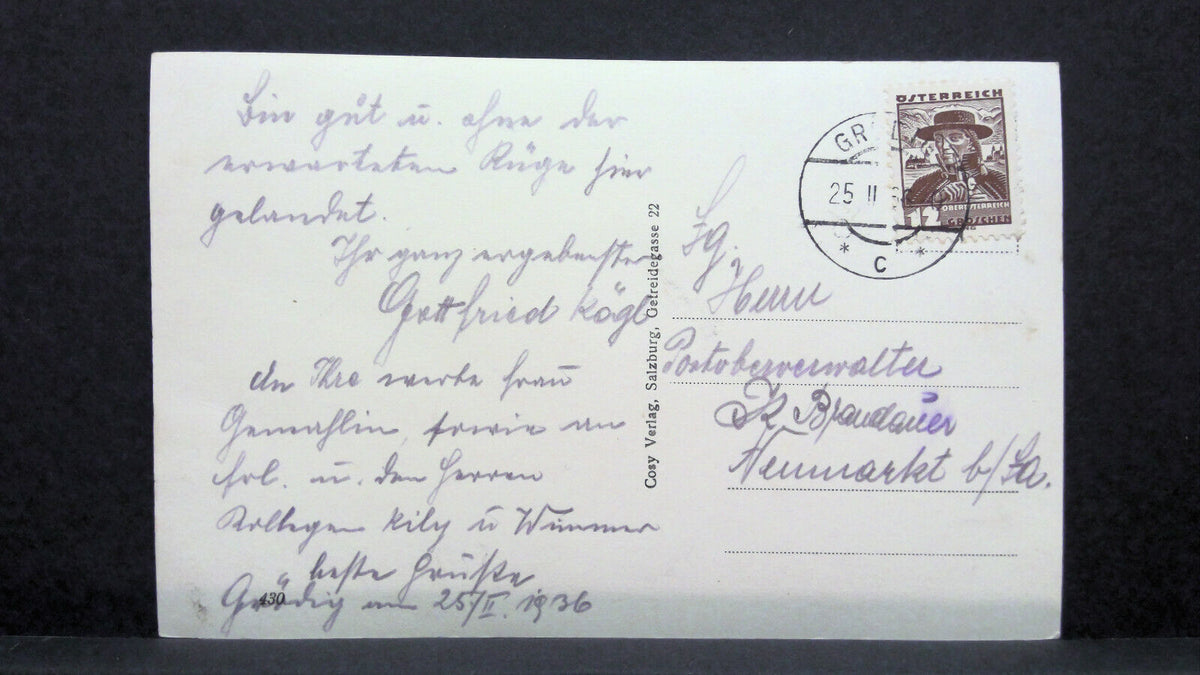 Bin gut u. ohne der
erwarteten Rüge hier
gelandet.
Ihr ganz ergebenster
Gottfried Kögl
An Ihre werte Frau
Gemahlin, sowie an
Frl. u. den Herren
Kollegen u Wimmer
beste Grüße
Grödig am 25/II. 1936
430
Cosy Verlag, Salzburg, Getreidegasse 22
ÖSTERREICH
OBERÖSTERREICH
12 GROSCHEN
GRÖD
25 II 36
* C *
Herrn
Postoberverwalter
Brandauer
Neumarkt b/Sa.